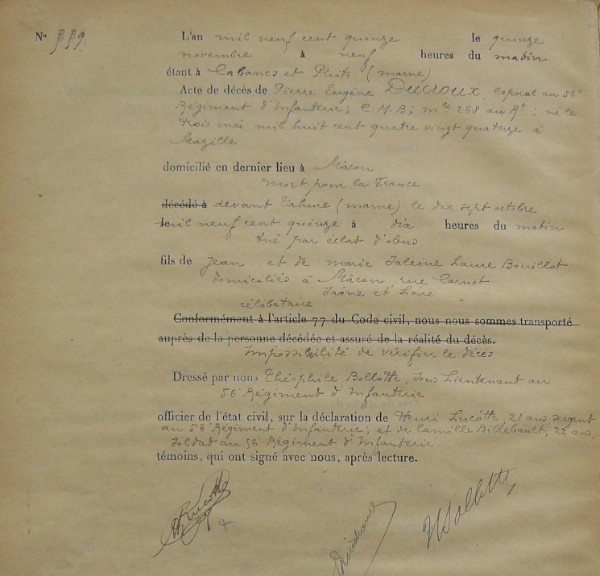 N° 339
L'an mil neuf cent quinze le quinze
novembre à neuf heures du matin
étant à Cabanes et Puits (marne)
Acte de décès de Pierre Eugène Ducroux, caporal au 56e
Régiment d'Infanterie; C.M.B; mle 268 au Rt; né le
trois mai mil huit cent quatre vingt quatorze à
Mazille
domicilié en dernier lieu à Mâcon
mort pour la France
décédé à devant Tahure (marne) le dix sept octobre
le mil neuf cent quinze à dix heures du matin
tué par éclat d'obus
fils de Jean et de marie Laure Bouillot
domiciliés à Mâcon, rue Carnot
Saône et Loire
célibataire
Conformément à l'article 77 du Code civil, nous nous sommes transporté
auprès de la personne décédée et assuré de la réalité du décès.
Impossibilité de vérifier le décès
Dressé par nous Théophile Bollotte, sous Lieutenant au
56e Régiment d'Infanterie
officier de l'état civil, sur la déclaration de Henri Lucotte, 21 ans, sergent
au 56e Régiment d'Infanterie; et de Camille Billebault, 22 ans,
soldat au 56e Régiment d'Infanterie
témoins, qui ont signé avec nous, après lecture.